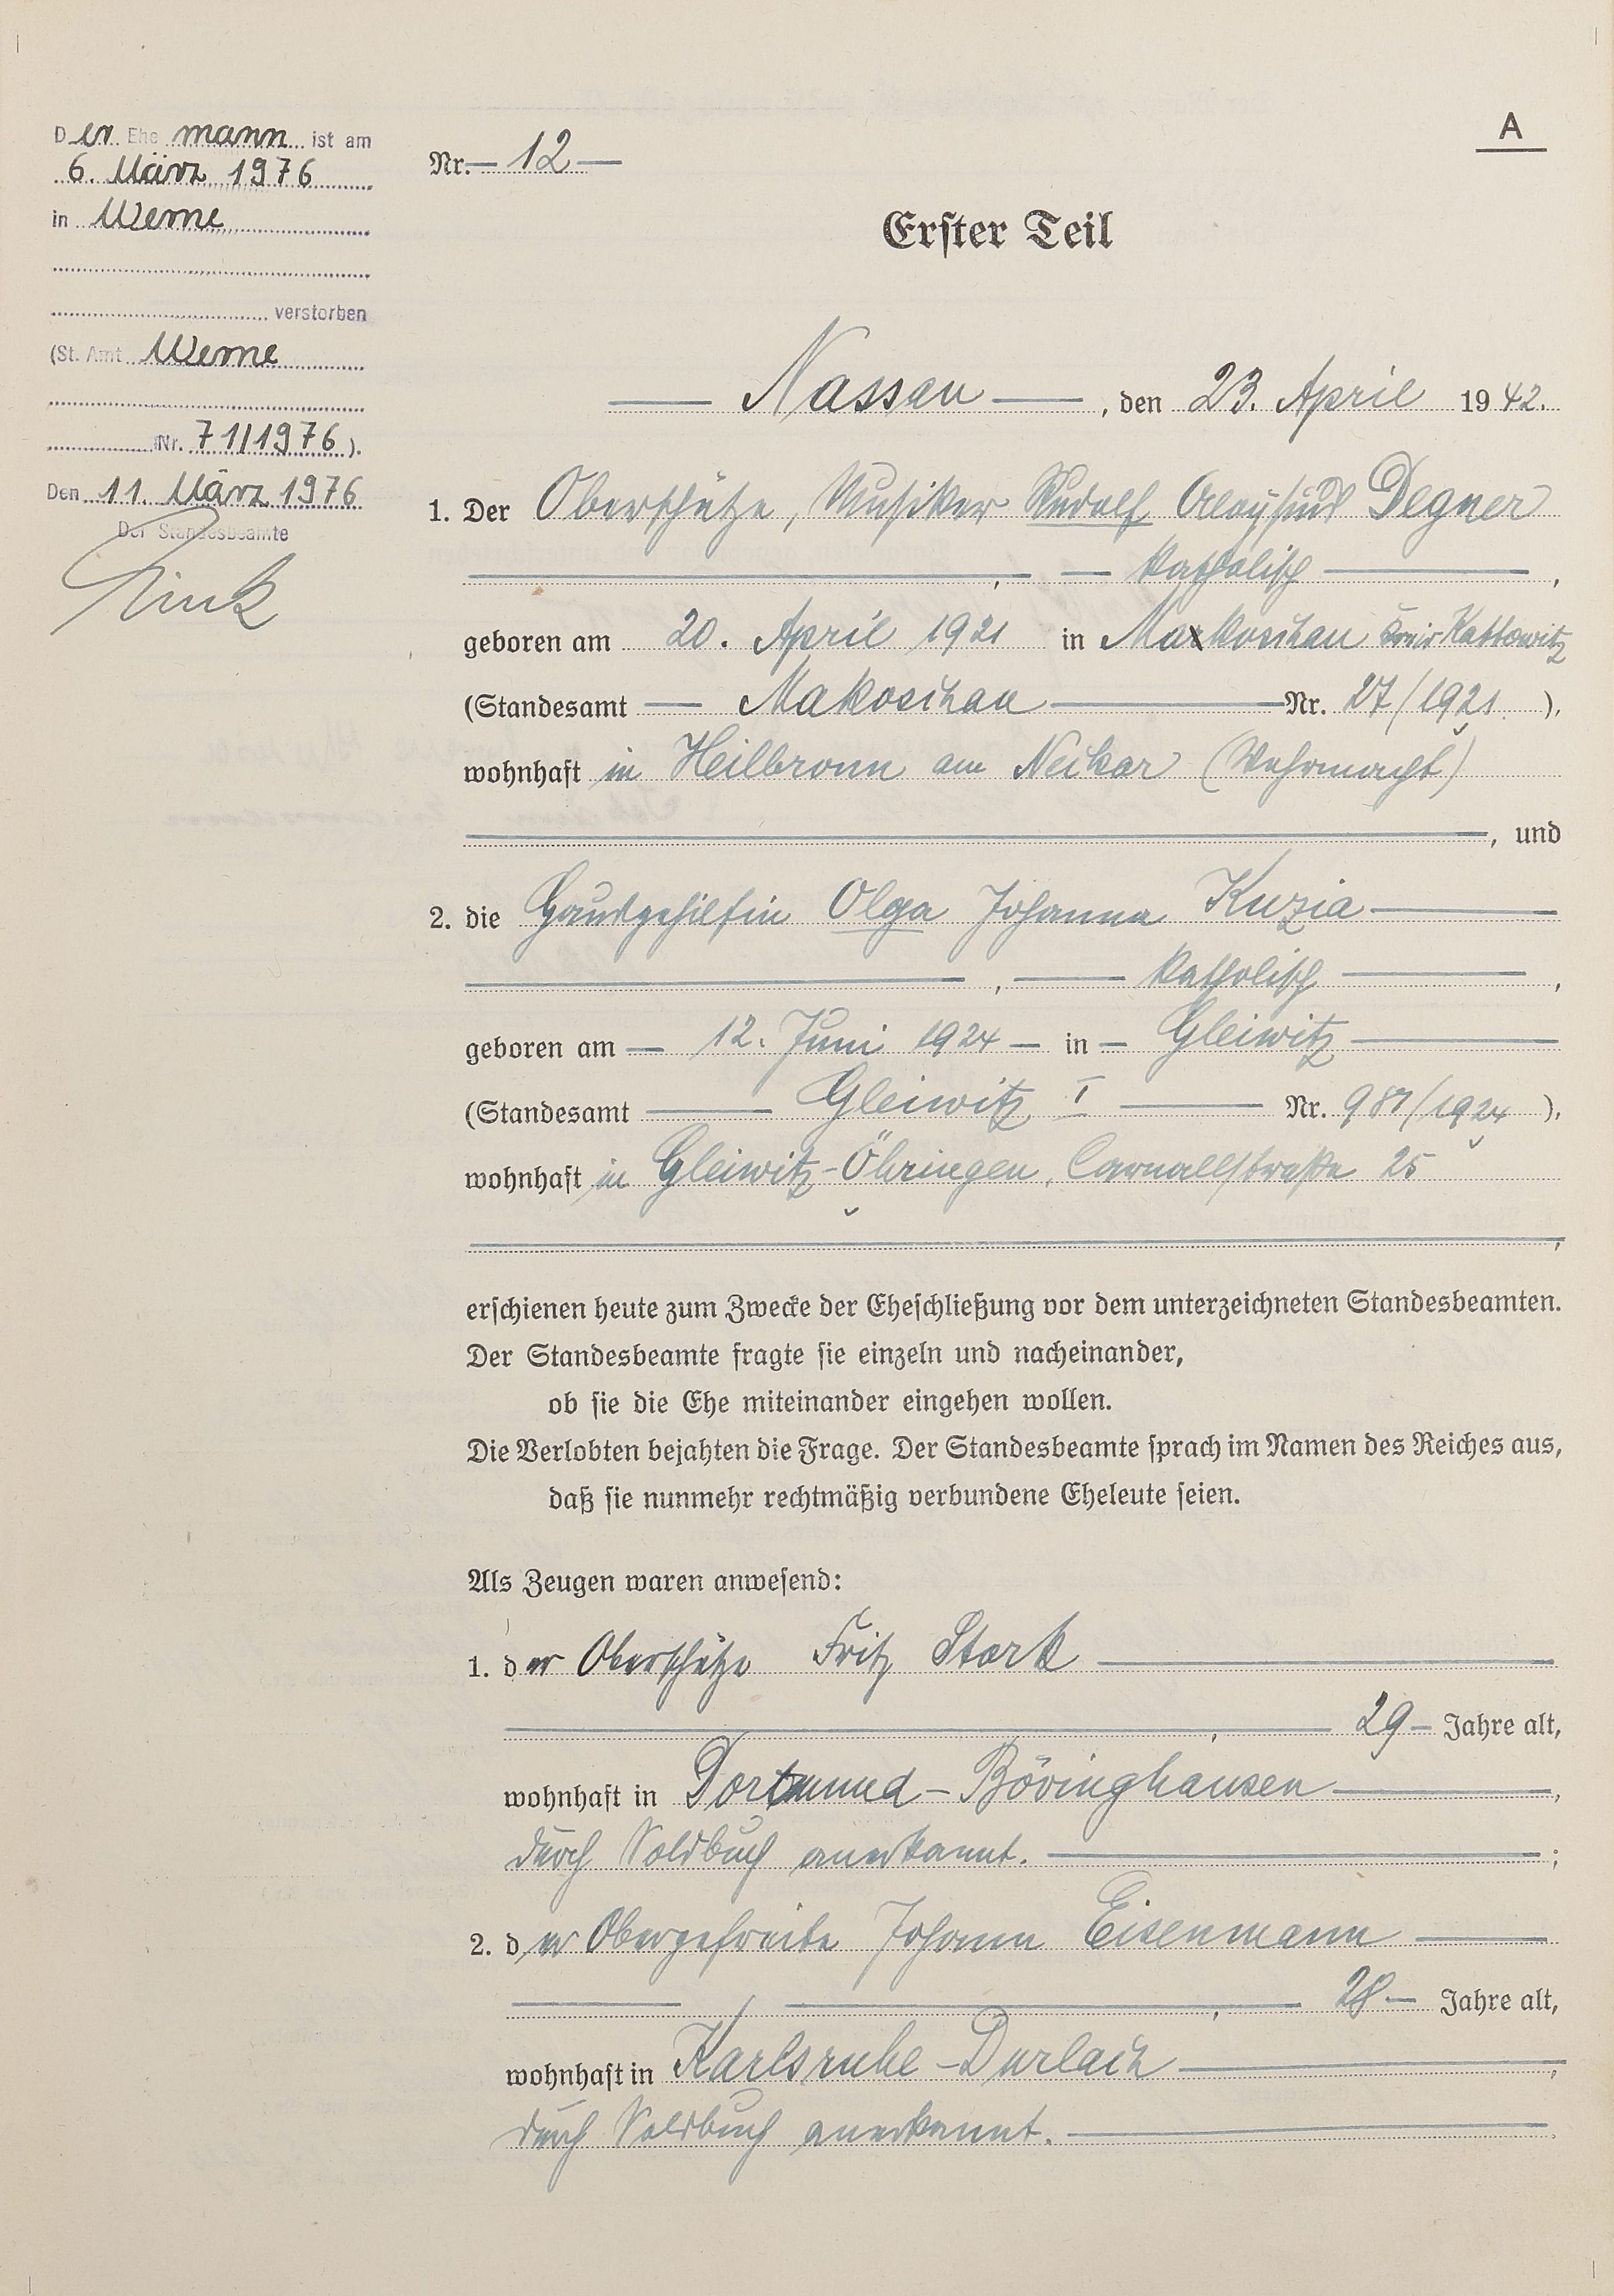 Der Ehemann ist am
6. März 1976
in Werne
verstorben
(St. Amt Werne
Nr. 71/1976).
Den 11. März 1976
Der Standesbeamte
A
Nr. 12
Erster Teil
Nassau, den 23. April 1942.
1. Der Oberschütze, Musiker Rudolf Aloysius Degner
, katholisch,
geboren am 20. April 1921 in Makoschau Kreis Kattowitz
(Standesamt Makoschau Nr. 27/1921),
wohnhaft in Heilbronn am Neckar (Wehrmacht)
, und
2. die Hausgehilfin Olga Johanna Kuzia
, katholisch,
geboren am 12. Juni 1924 in Gleiwitz
(Standesamt Gleiwitz I Nr. 987/1924),
wohnhaft in Gleiwitz-Öhringen, Carnallstraße 25
,
erschienen heute zum Zwecke der Eheschließung vor dem unterzeichneten Standesbeamten.
Der Standesbeamte fragte sie einzeln und nacheinander,
ob sie die Ehe miteinander eingehen wollen.
Die Verlobten bejahten die Frage. Der Standesbeamte sprach im Namen des Reiches aus,
daß sie nunmehr rechtmäßig verbundene Eheleute seien.
Als Zeugen waren anwesend:
1. der Oberschütze Fritz Stork
, 29 Jahre alt,
wohnhaft in Dortmund-Bövinghausen,
durch Soldbuch anerkannt.;
2. der Obergefreite Johann Eisenmann
, 28 Jahre alt,
wohnhaft in Karlsruhe-Durlach,
durch Soldbuch anerkannt.